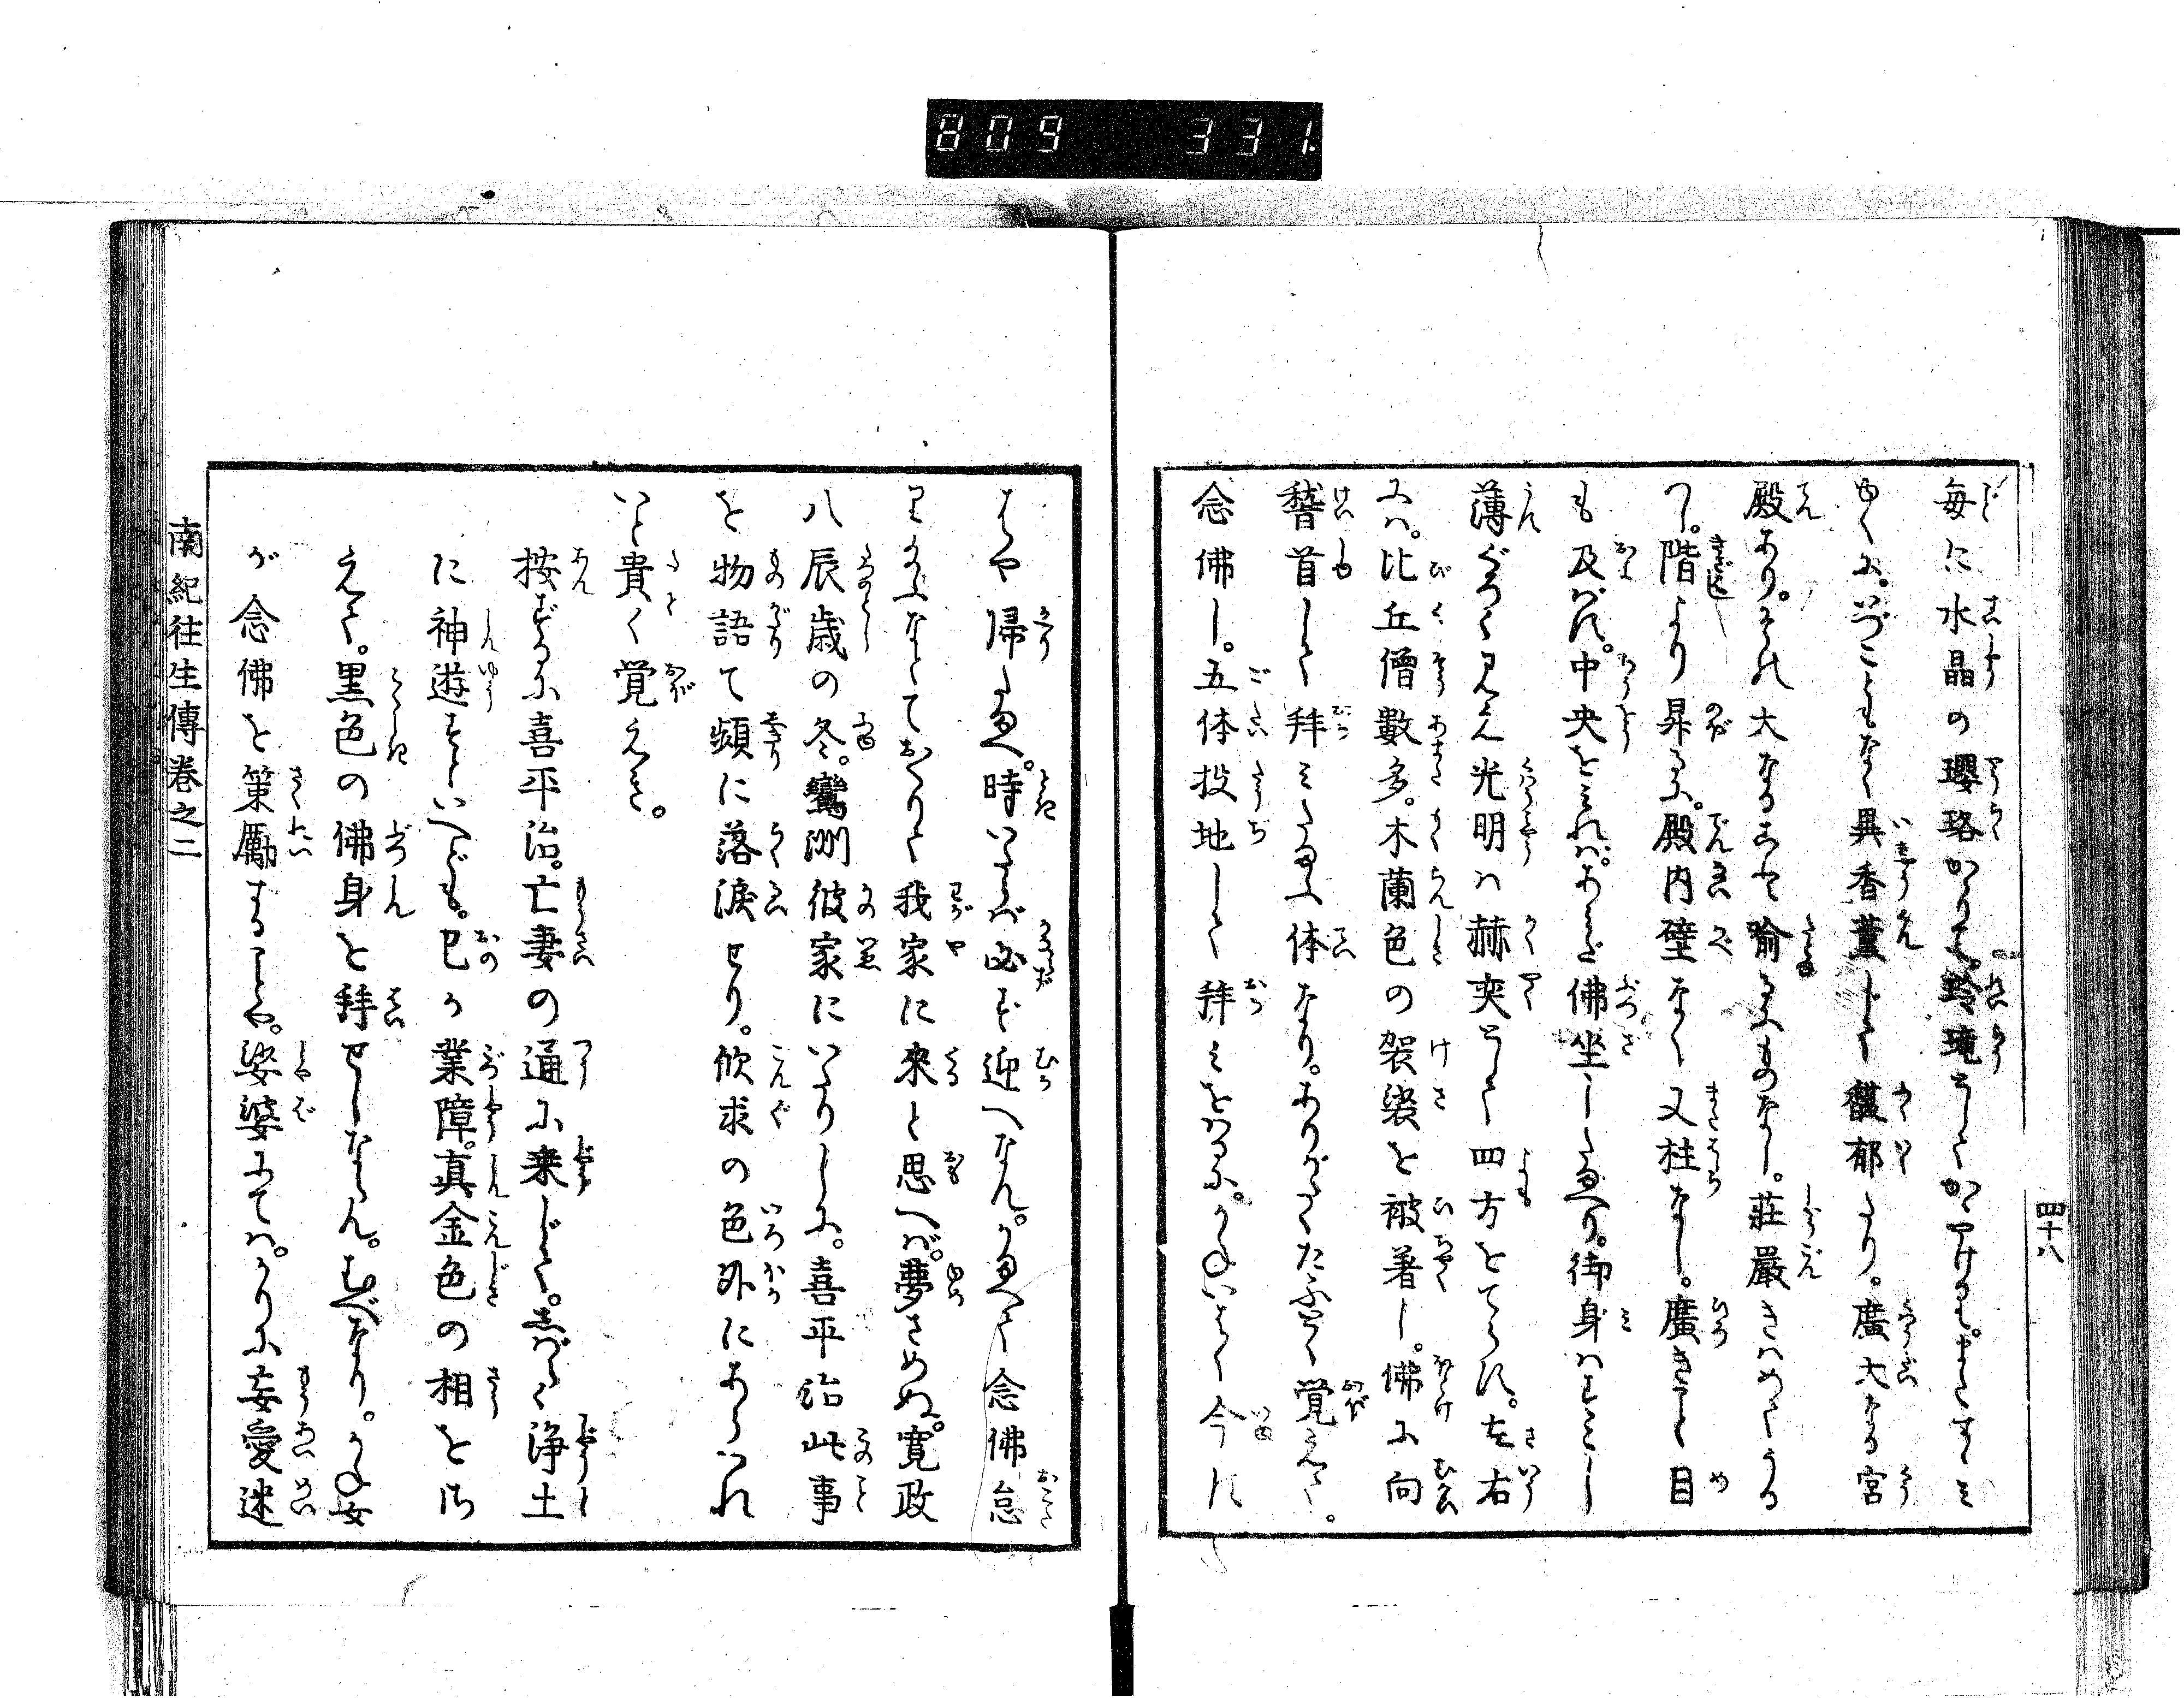 809 331.
四十八
毎に水晶の瓔珞かゝりて。玲瓏としてかゞやけるも。またすゝみ
ゆくに。いづこともなく異香薫じて馥郁たり。廣大なる宮
殿あり。その大なること喩るにものなし。荘嚴きはめてうる
つ。階より昇るに。殿内壁なく又柱なし。廣きこと目
も及ばれず。中央をみれば。あみだ佛坐したまへり。御身はすこし
薄ぐろく見え光明は赫奕として四方をてらす。左右
には。比丘僧數多。木蘭色の袈裟を被著し。佛に向
稽首して拜みたまふ体なり。ありがたくたふとく覚えて。
念佛し。五体投地して拜みをはるに。かねいはく今は
はや帰たまへ。時いたらば必ず迎へなん。かまへて念佛怠
りたまふなとておくりて我家に來と思へば。夢さめぬ。寛政
八辰歳の冬。鸞洲彼家にいたりしに。喜平治此事
を物語て頻に落涙せり。欣求の色外にあらはれ
いと貴く覚えき。
按ずるに喜平治。亡妻の通に乗じて。しばらく浄土
に神遊すといへども。己が業障。真金色の相をみ
えで。黒色の佛身を拜せしならん。むべなり。かね女
が念佛を策勵することや。娑婆にては。かりに妄愛迷
南紀往生傳巻之二